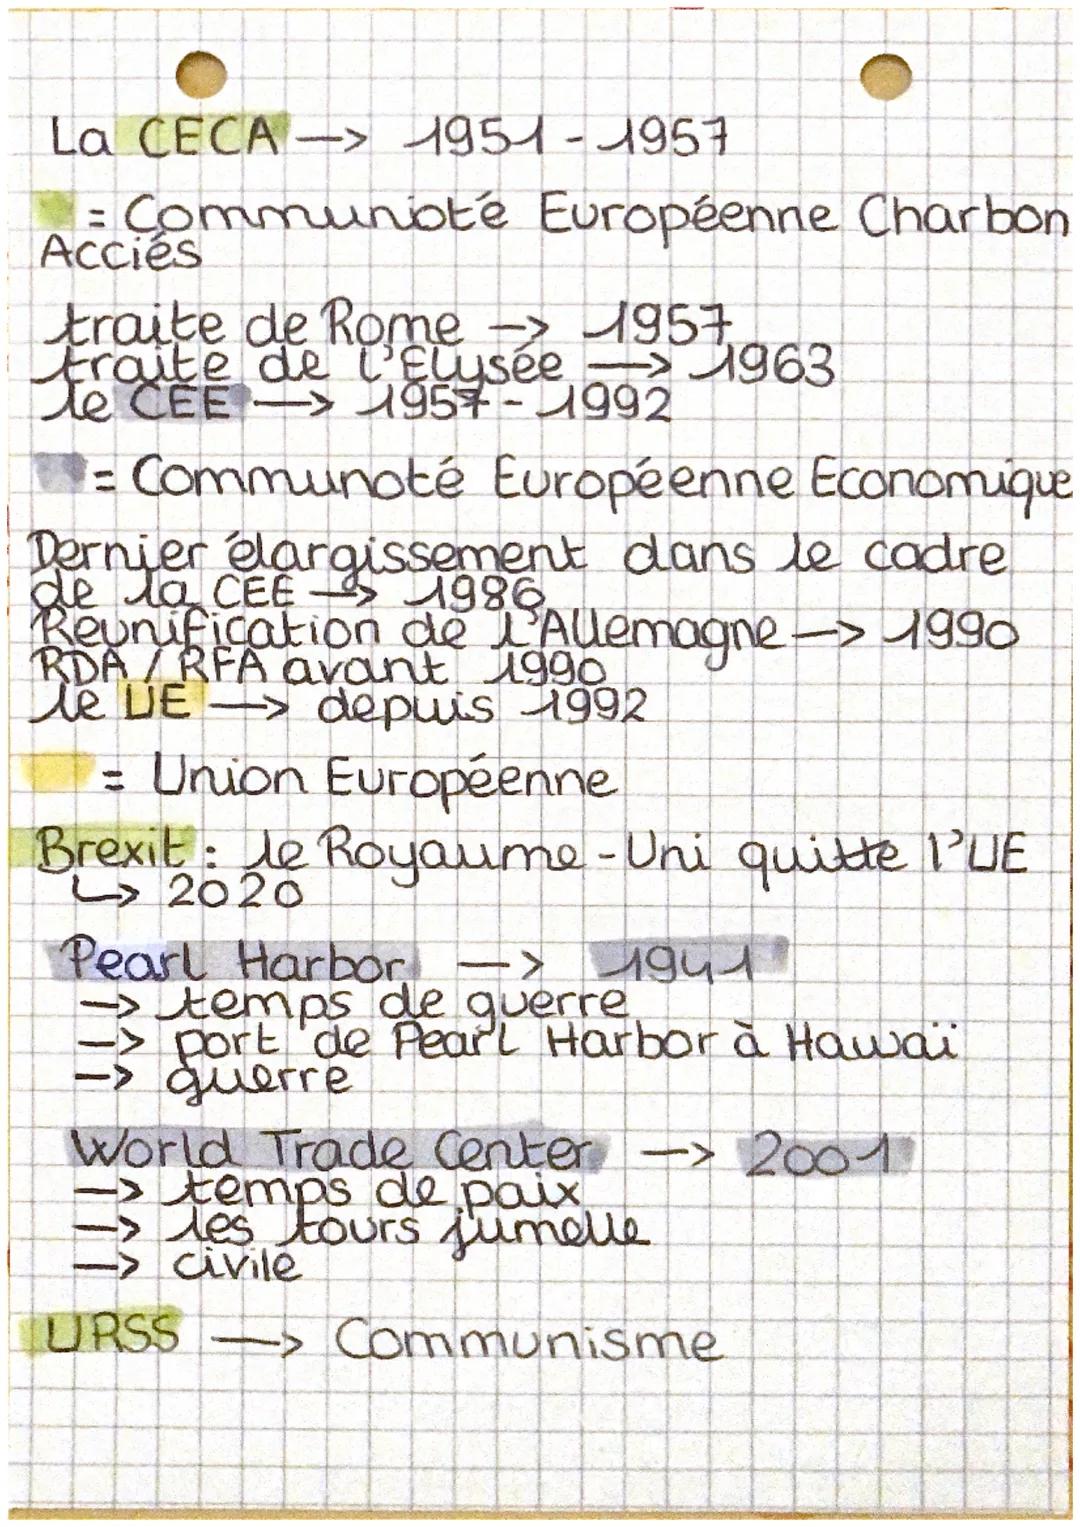 La CECA -> 1951 - 1957
= Communioté Européenne Charbon
Acciés
traite de Rome -> 1957
traite de l'Elysée -> 1963
le CEE -> 1957 - 1992
= Communoté Européenne Economique
Dernier élargissement dans le cadre
de la CEE -> 1986
Réunification de l'Allemagne -> 1990
RDA / RFA avant 1990
le UE -> depuis 1992
= Union Européenne
Brexit : le Royaume-Uni quitte l'UE
↳ 2020
Pearl Harbor -> 1941
-> temps de guerre
-> port de Pearl Harbor à Hawaï
-> guerre
World Trade Center -> 2001
-> temps de paix
-> les tours jumelle
-> civile
URSS -> Communisme